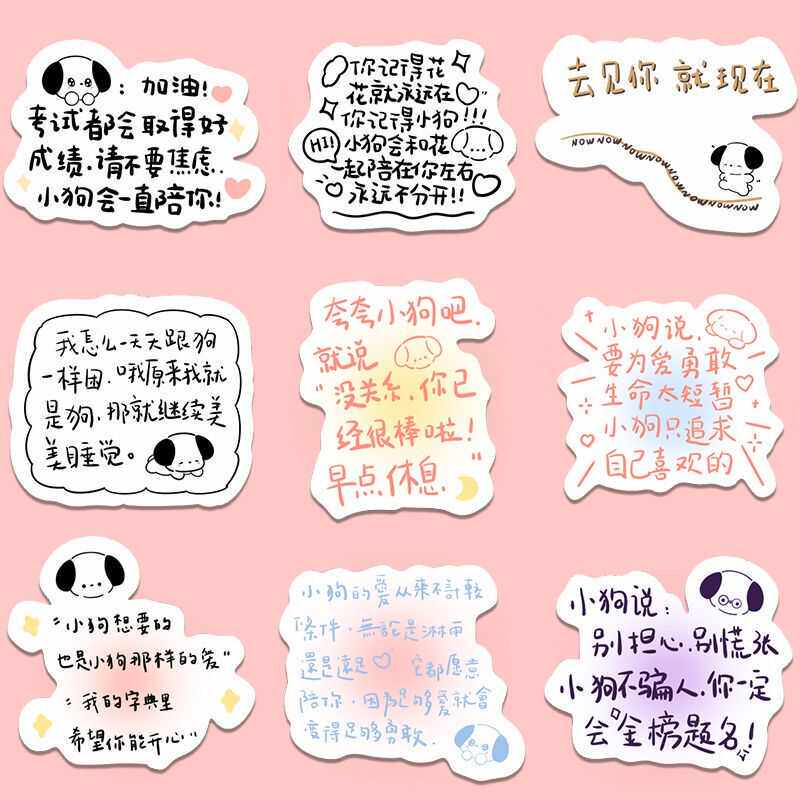 ：加油！
考试都会取得好
成绩，请不要焦虑．
小狗会一直陪你！
你记得花
花就永远在
你记得小狗！！！
HI!
小狗会和花
一起陪在你左右
永远不分开！！
去见你 就现在
NOWNOWNOWNOWNOWNOWNOWNOWNOW
我怎么一天天跟狗
一样困，哦原来我就
是狗，那就继续美
美睡觉。
夸夸小狗吧．
就说
“没关系，你已
经很棒啦！
早点休息．”
小狗说，
要为爱勇敢
生命太短暂
小狗只追求
自己喜欢的
“小狗想要的
也是小狗那样的爱”
“我的字典里
希望你能开心”
小狗的愛从來不計較
條件，無論是淋雨
還是遠足♡ 它都願意
陪你，因為足够愛就會
變得足够勇敢．
小狗说：
别担心，别慌张
小狗不骗人，你一定
会“金榜题名！”